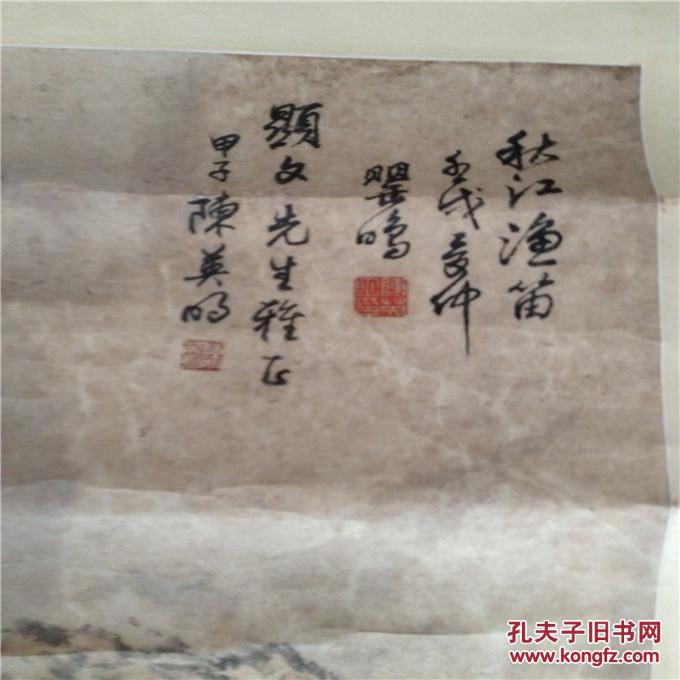 秋江渔笛
壬戌夏仲
鸣
顯文先生雅正
甲子陳英鸣
孔夫子旧书网
www.kongfz.com